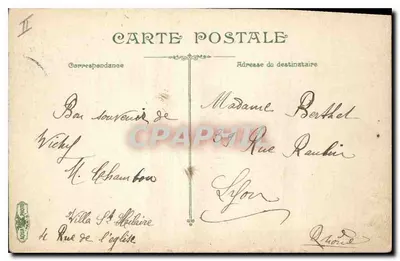 II
CARTE POSTALE
Correspondance
Adresse du destinataire
Bon souvenir de
Vichy
M. Chambon
Villa St Hilaire
4 Rue de l'église
Madame Berthet
69 Rue
Lyon
Rhône
CAP6TU